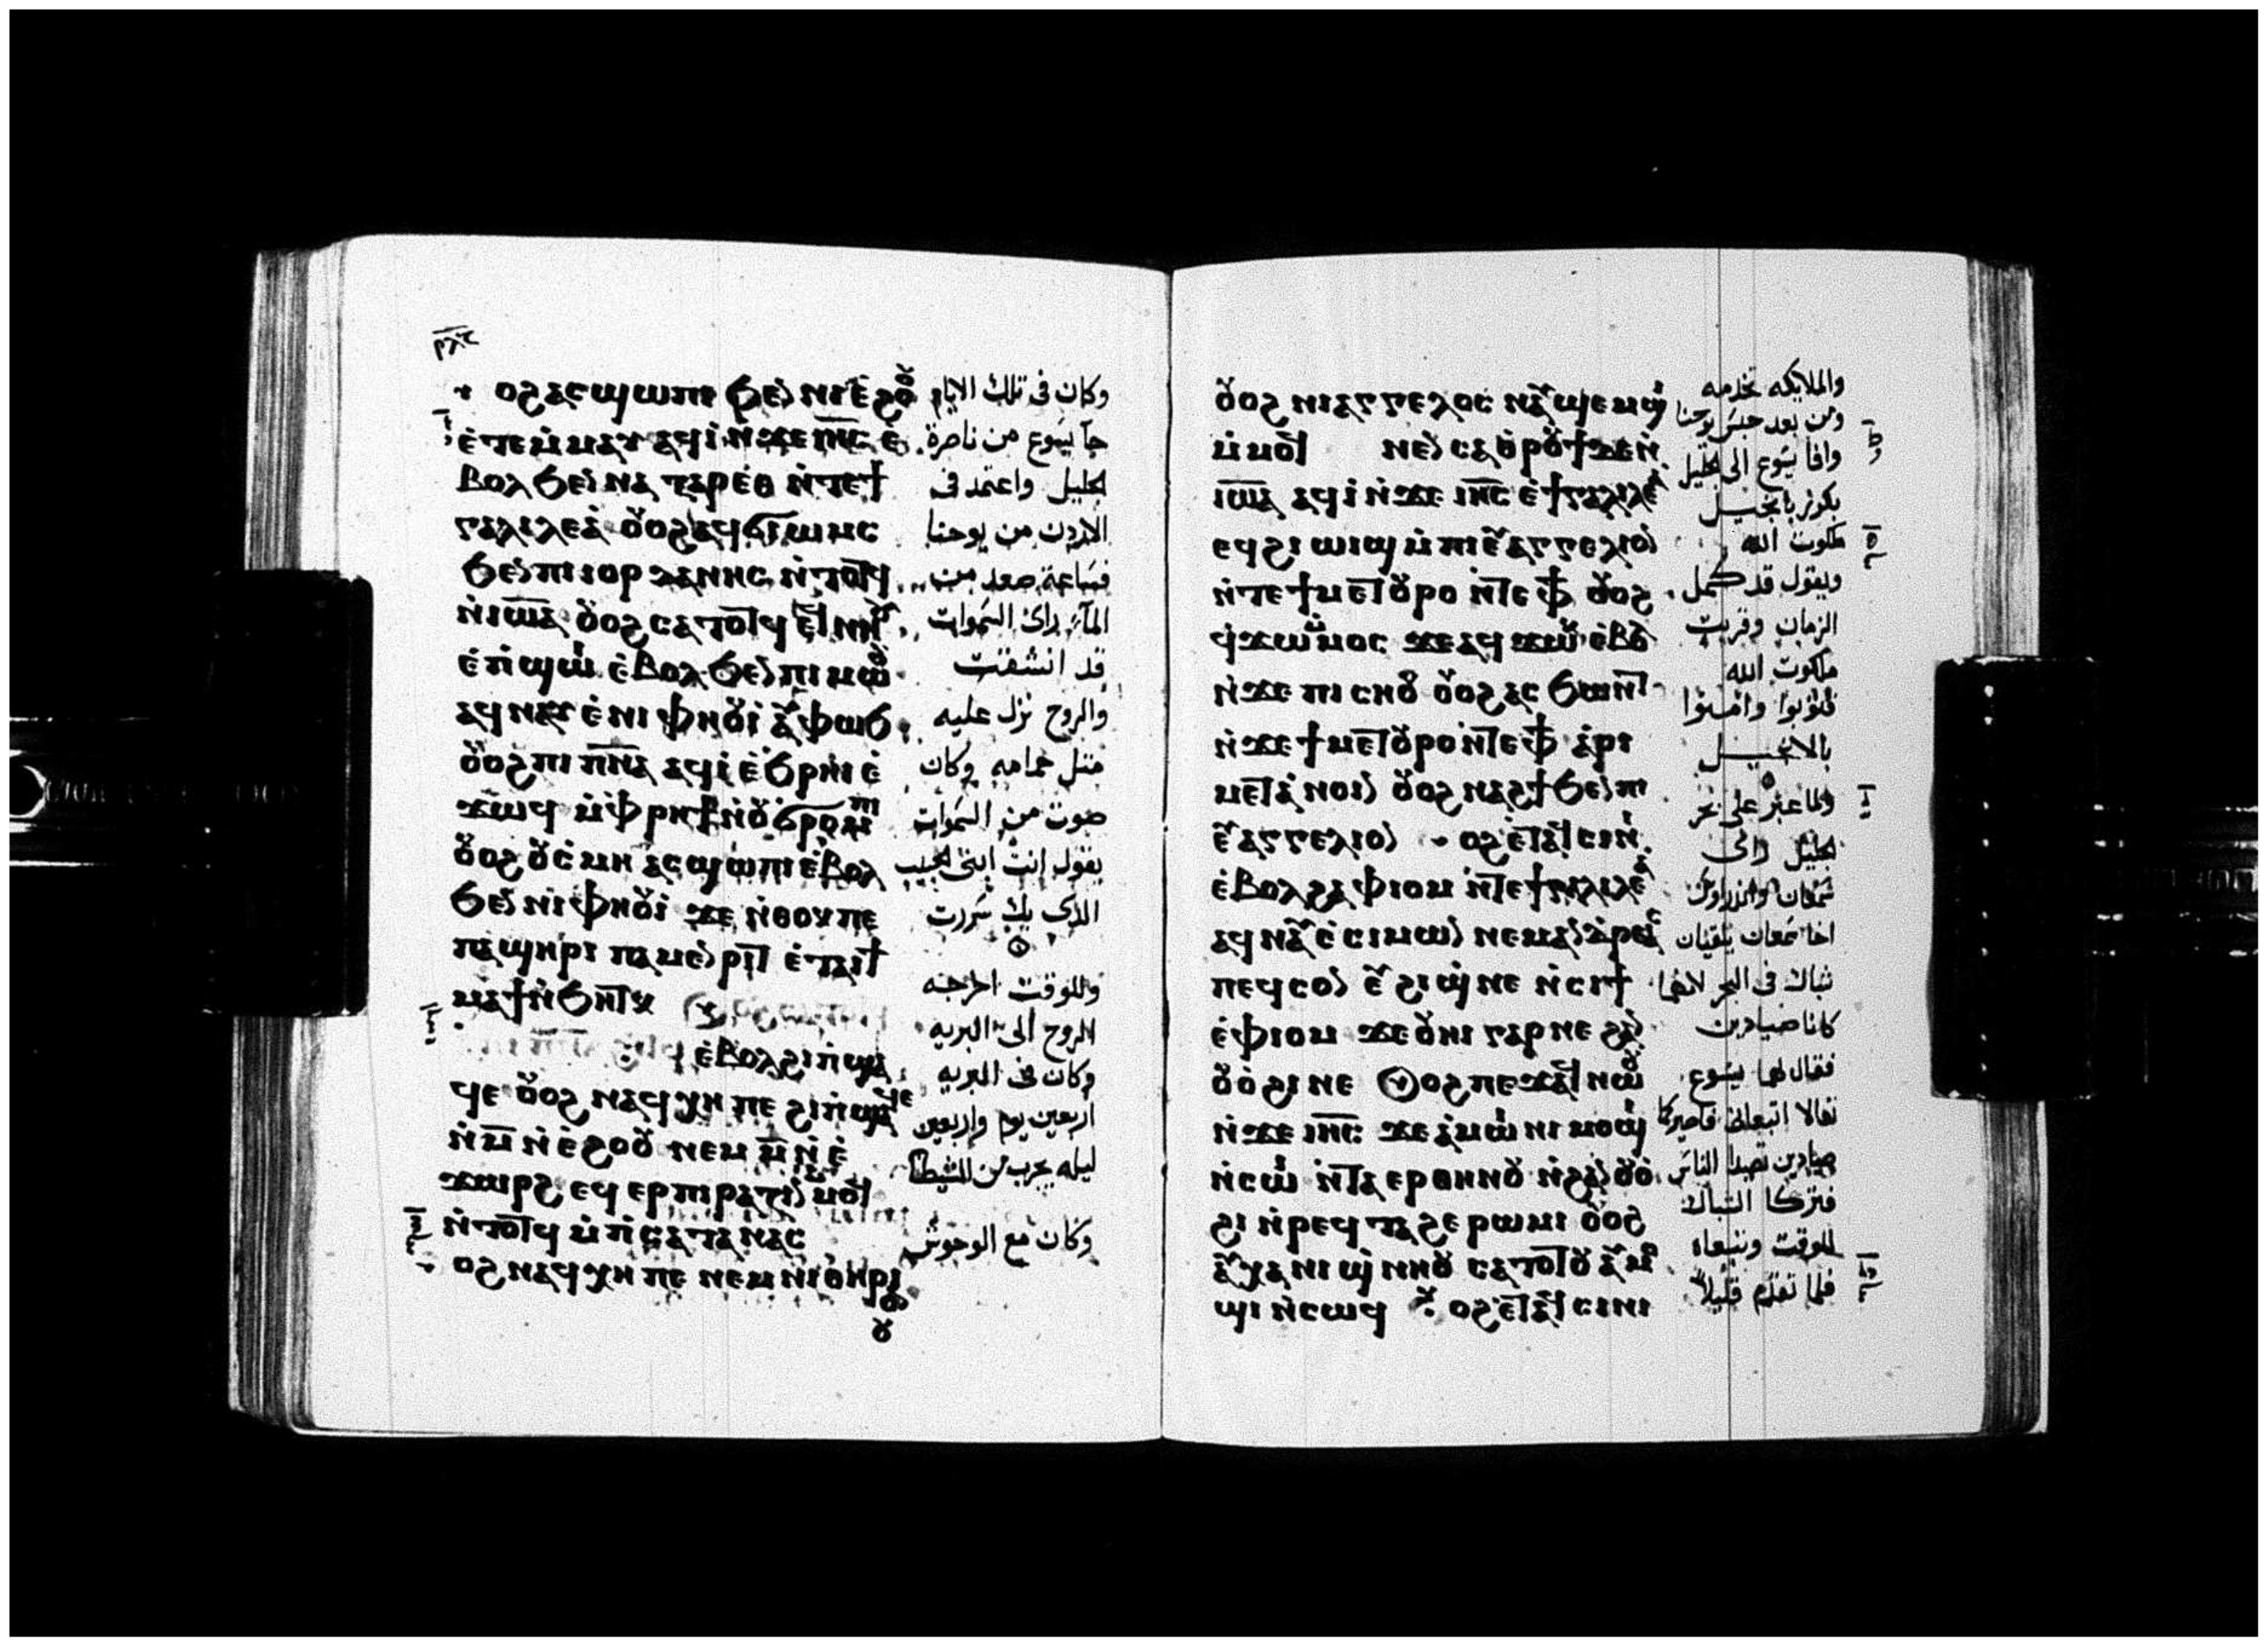 ⲟϩⲁⲥϣⲱⲡⲓ ϧⲉⲛ ⲛⲓⲉ̀ϩⲟⲟⲩ
ⲉ̀ⲧⲉⲙ̀ⲙⲁⲩ ⲁϥⲓ̀ ⲛ̀ϫⲉ ⲓⲏ̅ⲥ ⲉ̀
ⲃⲟⲗ ϧⲉⲛ ⲛⲁⲍⲁⲣⲉⲑ ⲛ̀ⲧⲉϯ
ⲅⲁⲗⲓⲗⲉⲁ̀ ⲟⲩⲟϩ ⲁϥϭⲓⲱⲙⲥ
ϧⲉⲛ ⲡⲓⲓⲟⲣⲇⲁⲛⲏⲥ ⲛ̀ⲧⲟⲧϥ
ⲛ̀ⲓⲱ̅ⲁ ⲟⲩⲟϩ ⲥⲁⲧⲟⲧϥ ⲉⲧⲁϥⲛⲏⲟⲩ
ⲉ̀ⲡ̀ϣⲱⲓ ⲉ̀ⲃⲟⲗ ϧⲉⲛ ⲡⲓⲙⲱⲟⲩ
ⲁϥⲛⲁⲩ ⲉ̀ⲛⲓⲫⲏⲟⲩⲓ̀ ⲉⲁⲩⲫⲱϧ
ⲟⲩⲟϩ ⲡⲓⲡ̅ⲛ̅ⲁ ⲁϥⲓ̀ ⲉ̀ϧⲣⲏⲓ ⲉ̀
ϫⲱϥ ⲙ̀ⲫⲣⲏϯ ⲛ̀ⲟⲩϭⲣⲟⲙⲡⲓ
ⲟⲩⲟϩ ⲟⲩⲥ̀ⲙⲏ ⲁⲥϣⲱⲡⲓ ⲉ̀ⲃⲟⲗ
ϧⲉⲛ ⲛⲓⲫⲏⲟⲩⲓ̀ ϫⲉ ⲛ̀ⲑⲟⲕ ⲡⲉ
ⲡⲁϣⲏⲣⲓ ⲡⲁⲙⲉⲛⲣⲓⲧ ⲉ̀ⲧⲁⲓϯ
ⲙⲁϯ ⲛ̀ϧⲏⲧⲕ
ⲉ̀ⲃⲟⲗ ϩⲓ ⲡ̀ϣⲁ
ϥⲉ ⲟⲩⲟϩ ⲛⲁϥⲭⲏ ⲡⲉ ϩⲓ ⲡ̀ϣⲁϥⲉ
ⲛ̀ⲙ̅ ⲛ̀ⲉ̀ϩⲟⲟⲩ ⲛⲉⲙ ⲙ̅ ⲛ̀ⲉ̀
ϫⲱⲣϩ ⲉϥⲉⲣⲡⲓⲣⲁⲍⲓⲛ ⲙ̀ⲙⲟϥ
ⲛ̀ⲧⲟⲧϥ ⲙ̀ⲡ̀ⲥⲁⲧⲁⲛⲁⲥ
ⲟϩ ⲛⲁϥⲭⲏ ⲡⲉ ⲛⲉⲙ ⲛⲓⲑⲏⲣⲓ
ⲟⲛ
وكان فى تلك الايام
جا يسوع من ناصرة
الجليل واعتمد فى
الاردن من يوحنا
فساعة صعد من
الماء راى السموات
قد انشقت
والروح نزل عليه
مثل حمامه وكان
صوت من السموات
يقول انت ابنى الحبيب
الذى بك سررت
وللوقت اخرجه
الروح الى البريه
وكان فى البريه
اربعين يوم واربعين
ليله يجرب من الشيطان
وكان مع الوحوش
ⲟⲩⲟϩ ⲛⲓⲁⲅⲅⲉⲗⲟⲥ ⲛⲁⲩϣⲉⲙϣⲓ
ⲙ̀ⲙⲟϥ ⲙⲉⲛⲉⲛⲥⲁ ⲑⲣⲟⲩϯ ϫⲉ ⲛ̀
ⲓⲱ̅ⲁ ⲁϥⲓ̀ ⲛ̀ϫⲉ ⲓⲏ̅ⲥ ⲉ̀ϯⲅⲁⲗⲓⲗⲉⲁ
ⲉϥϩⲓⲱⲓϣ ⲙ̀ⲡⲓⲉⲩⲁⲅⲅⲉⲗⲓⲟⲛ
ⲛ̀ⲧⲉ ϯⲙⲉⲧⲟⲩⲣⲟ ⲛ̀ⲧⲉ ⲫϯ ⲟⲩⲟϩ
ϥ̀ϫⲱ ⲙ̀ⲙⲟⲥ ϫⲉ ⲁϥϫⲱⲕ ⲉ̀ⲃⲟⲗ
ⲛ̀ϫⲉ ⲡⲓⲥⲏⲟⲩ ⲟⲩⲟϩ ⲁⲥϧⲱⲛⲧ
ⲛ̀ϫⲉ ϯⲙⲉⲧⲟⲩⲣⲟ ⲛ̀ⲧⲉ ⲫϯ ⲁⲣⲓ
ⲙⲉⲧⲁⲛⲟⲓⲛ ⲟⲩⲟϩ ⲛⲁϩϯ ϧⲉⲛ ⲡⲓ
ⲉⲩⲁⲅⲅⲉⲗⲓⲟⲛ ⲟϩ ⲉⲧⲁϥⲥⲓⲛⲓ
ⲉ̀ⲃⲟⲗ ϩⲁ ⲫⲓⲟⲙ ⲛ̀ⲧⲉ ϯⲅⲁⲗⲓⲗⲉⲁ
ⲁϥⲛⲁⲩ ⲉ̀ⲥⲓⲙⲱⲛ ⲛⲉⲙ ⲁⲛⲇⲣⲉⲁⲥ
ⲡⲉϥⲥⲟⲛ ⲉⲩϩⲓϣⲛⲉ ⲛ̀ⲥⲓϯ
ⲉ̀ⲫⲓⲟⲙ ϫⲉ ⲟⲩⲏⲓ ⲅⲁⲣ ⲛⲉ ϩⲁⲛ
ⲟⲩⲟ̀ϩⲓ ⲛⲉ ⲟϩ ⲡⲉϫⲁϥ ⲛⲱⲟⲩ
ⲛ̀ϫⲉ ⲓⲏ̅ⲥ ϫⲉ ⲁⲙⲱⲓⲛⲓ ⲙⲟϣⲓ
ⲛ̀ⲥⲱⲓ ⲛ̀ⲧⲁⲉⲣⲑⲏⲛⲟⲩ ⲛ̀ϩⲁⲛⲟⲩⲟ̀
ϩⲓ ⲛ̀ⲣⲉϥⲧⲁϩⲉ ⲣⲱⲙⲓ ⲟⲩⲟϩ
ⲁⲩⲭⲁ ⲛⲓϣⲛⲏⲟⲩ ⲥⲁⲧⲟⲧⲟⲩ ⲁⲩⲙⲟ
ϣⲓ ⲛ̀ⲥⲱϥ ⲟϩ ⲉⲧⲁϥⲥⲓⲛⲓ
والملايكه تخدمه
ومن بعد حبس يوحنا
وافا يسوع الى الجليل
يكرز بانجيل
ملكوت الله
ويقول قد كمل
الزمان وقربت
ملكوت الله
فتوبوا وامنوا
بالانجيل
ولما عبر على بحر
الجليل راى
سمعان واندراوس
اخا سمعان يلقيان
شباك فى البحر لانهما
كانا صيادين
فقال لهما يسوع
تعالا اتبعانى فاصيركما
صيادين تصيدا الناس
فتركا الشباك
للوقت وتبعاه
فلما تقدم قليلا